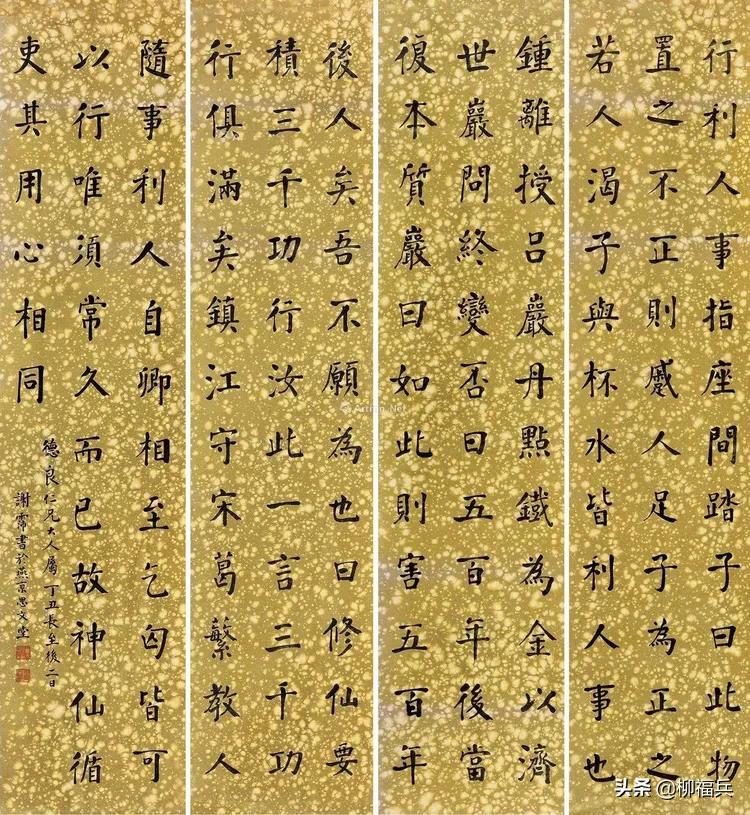 行利人事指座間踏子曰此物
置之不正則慼人足予為正之
若人渴予與杯水皆利人事也
鍾離授呂巖丹點鐵為金以濟
世巖問終變否曰五百年後當
復本質巖曰如此則害五百年
後人矣吾不願為也曰修仙要
積三千功行汝此一言三千功
行俱滿矣鎮江守宋葛蘩教人
隨事利人自卿相至乞匄皆可
以行唯須常久而已故神仙循
吏其用心相同
德良仁兄大人屬 丁丑長至後二日
謝霈書於燕京思文堂
Artron.Net
头条 @柳福兵